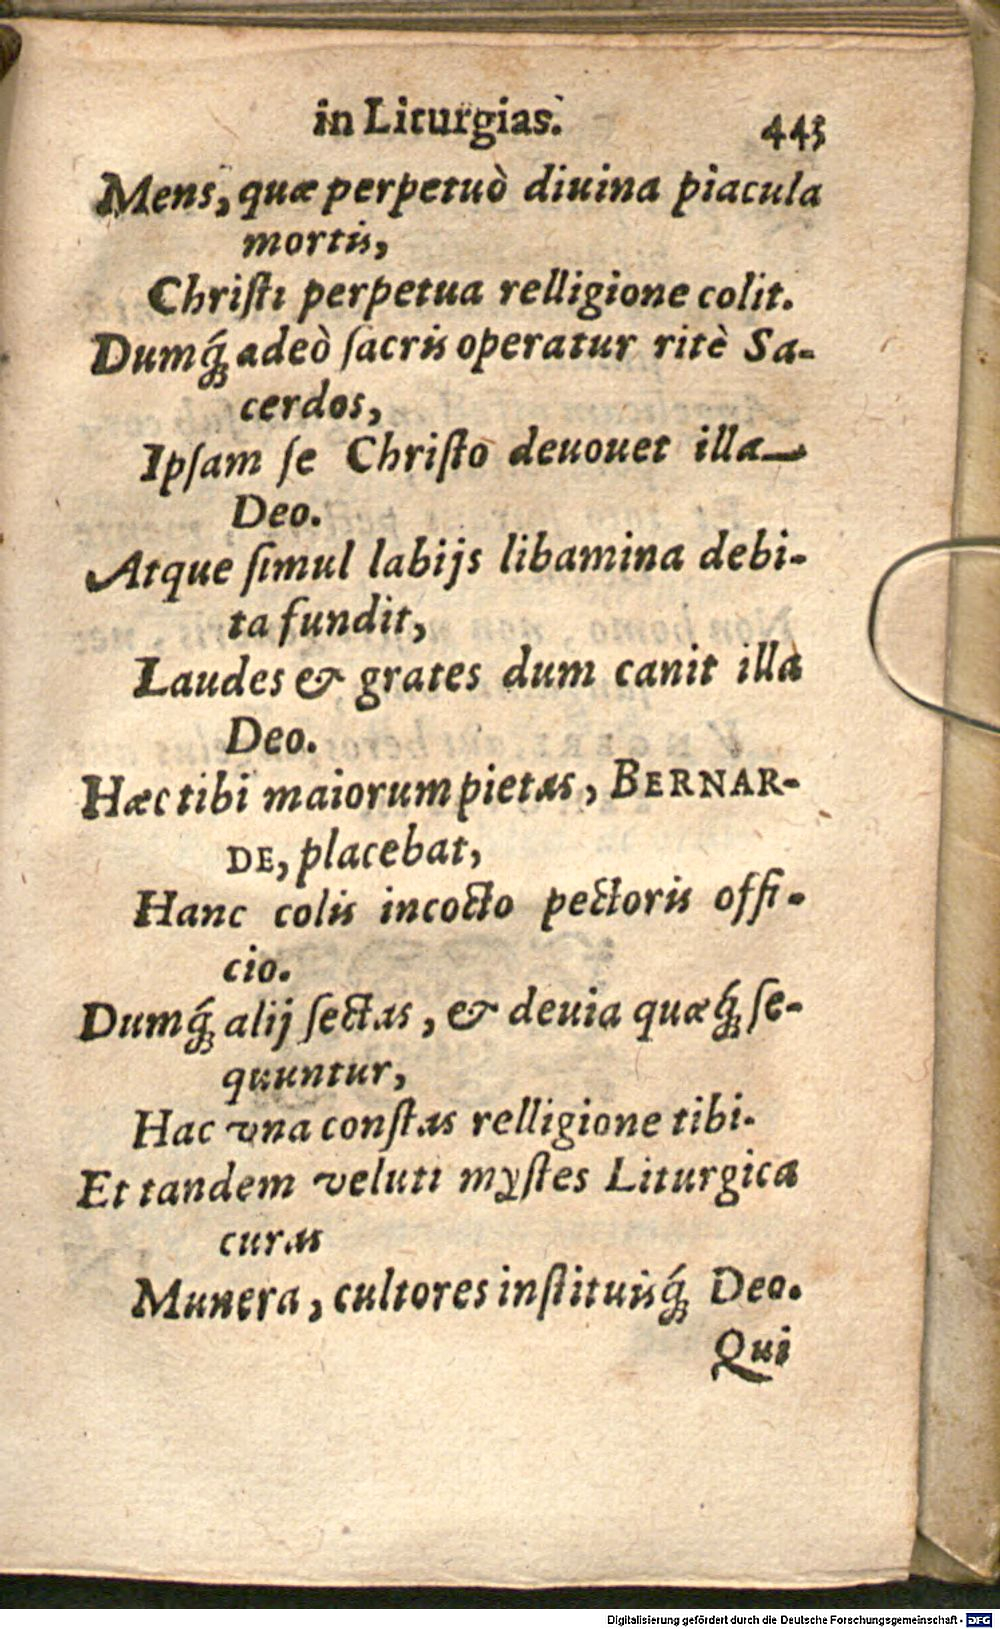 in Liturgias.
445
Mens, quæ perpetuò diuina piacula
mortis,
Chriſti perpetua relligione colit.
Dumq́; adeò ſacris operatur ritè Sa-
cerdos,
Ipſam ſe Chriſto deuouet illa
Deo.
Atque ſimul labijs libamina debi-
ta fundit,
Laudes & grates dum canit illa
Deo.
Hæc tibi maiorum pietas, BERNAR-
DE, placebat,
Hanc colis incocto pectoris offi-
cio.
Dumq́; alij ſectas, & deuia quæq́; ſe-
quuntur,
Hac vna conſtas relligione tibi.
Et tandem veluti myſtes Liturgica
curas
Munera, cultores inſtituisq́; Deo.
Qui
Digitalisierung gefördert durch die Deutsche Forschungsgemeinschaft - DFG